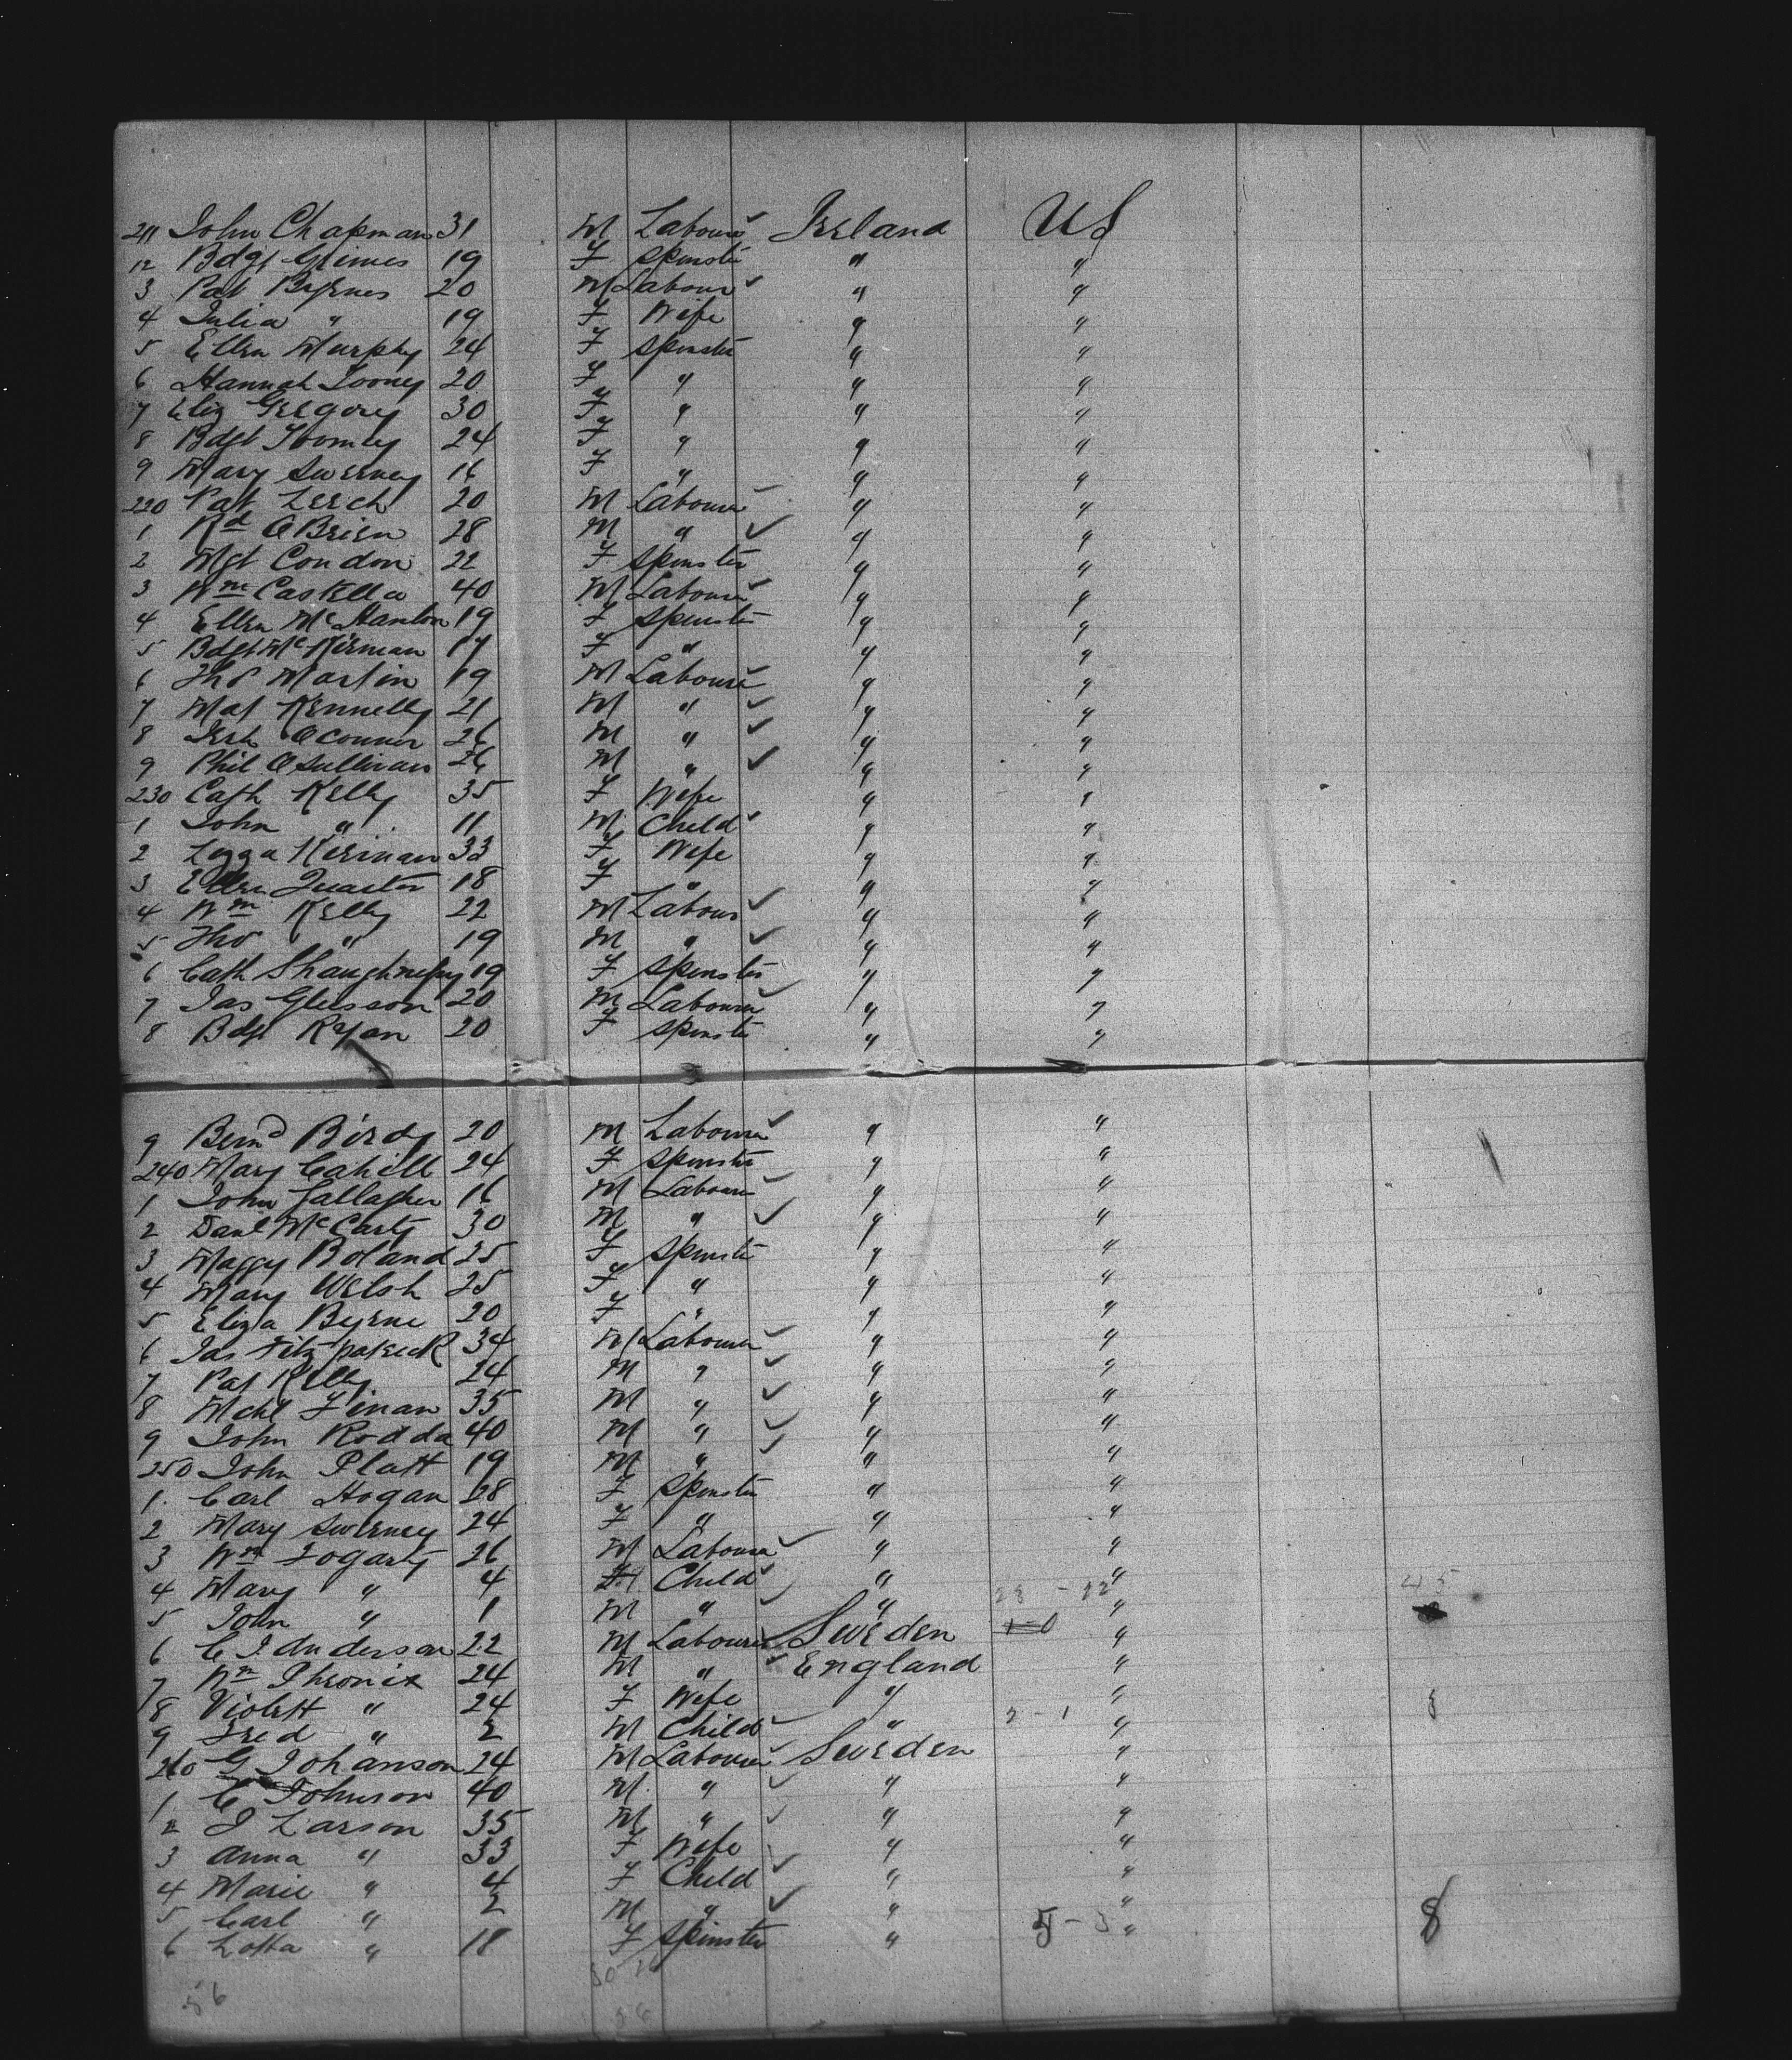 211 John Chapman 31 M Labourer Ireland US
12 Bdgt Grimes 19 F Spinster " "
3 Pat Byrnes 20 M Labour " "
4 Julia " 19 F Wife " "
5 Ellen Murphy 24 F Spinster " "
6 Hannah Looney 20 F " " "
7 Eliz Gregory 30 F " " "
8 Bdgt Toomey 24 F " " "
9 Mary Sweeney 16 F " " "
220 Pat Leech 20 M Labourer " "
1 Rd O Brien 28 M " " "
2 Mgt Condon 22 F Spinster " "
3 Wm Castella 40 M Labourer " "
4 Ellen Mc Hanlon 19 F Spinster " "
5 Bdgt Mc Kirman 17 F " " "
6 Tho Martin 19 M Labourer " "
7 Mat Kennelly 21 M " " "
8 Jerh O Connor 26 M " " "
9 Phil O Sullivan 26 M " " "
230 Cath Kelly 35 F Wife " "
1 John " 11 M Child " "
2 Kirinan 33 F Wife " "
3 Ellen Quarter 18 F " " "
4 Wm Kelly 22 M Labour " "
5 Tho " 19 M " " "
6 Cath Shaughnessy 19 F Spinster " "
7 Jas Gleeson 20 M Labourer " "
8 Bdgt Ryan 20 F Spinster " "
9 Bernd Birdy 20 M Labourer " "
240 Mary Cahill 24 F Spinster " "
1 John Gallagher 16 M Labourer " "
2 Danl Mc Carty 30 M " " "
3 Maggy Boland 25 F Spinster " "
4 Mary Welsh 25 F " " "
5 Eliza Byrne 20 F " " "
6 Jas Fitzpatrick 34 M Labourer " "
7 Pat Kelly 24 M " " "
8 Mchl Finan 35 M " " "
9 John Rodda 40 M " " "
250 John Platt 19 M " " "
1 Carl Hogan 28 F Spinster " "
2 Mary Sweeney 24 F " " "
3 Wm Fogarty 26 M Labourer " "
4 Mary " 4 F Child " 28 - 12 " 45
5 John " 1 M " " "
6 C J Anderson 22 M Labourer Sweden 1-0 "
7 Wm Pheonix 24 M " England "
8 Violett " 24 F Wife " "
9 Fred " 2 M Child " 2 - 1 "
260 G Johanson 24 M Labourer Sweden "
1 C Johnson 40 M " " "
2 J Larson 35 M " " "
3 Anna " 33 F Wife " "
4 Marie " 4 F Child " "
5 Carl " 2 M " " "
6 Lotta " 18 F Spinster " 5 - 3 " 8
56